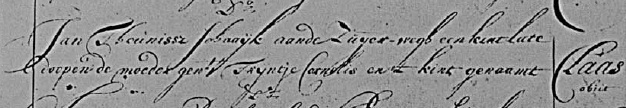 Jan Theunissz Schaaijk aande Zuijer-wegh een kint late
doopen de moeder gent Trijntje Cornelis en 't kint genaamt
Claas
obiit